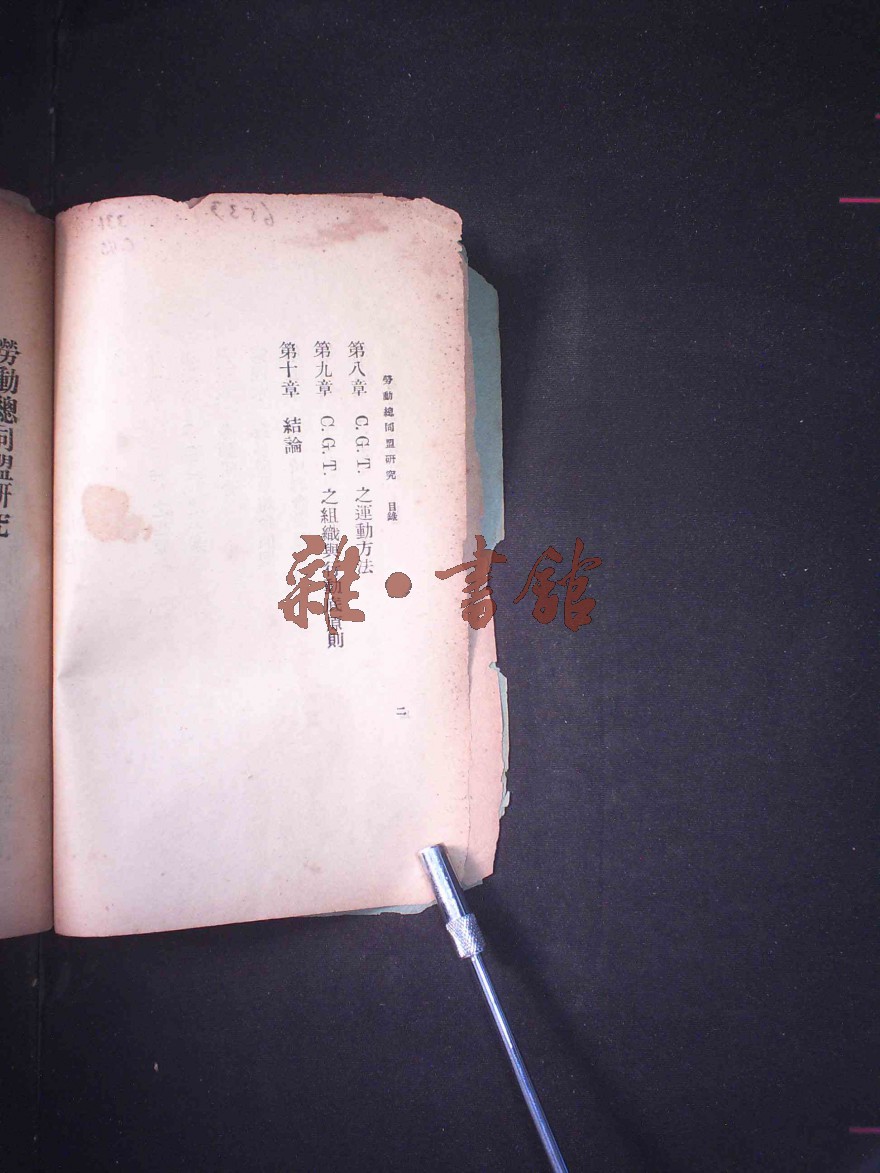 勞動總同盟研究 目錄
二
第八章 C.G.T. 之運動方法
第九章 C.G.T. 之組織與行動底原則
第十章 結論
勞動總同盟研究
雜·書館
6533